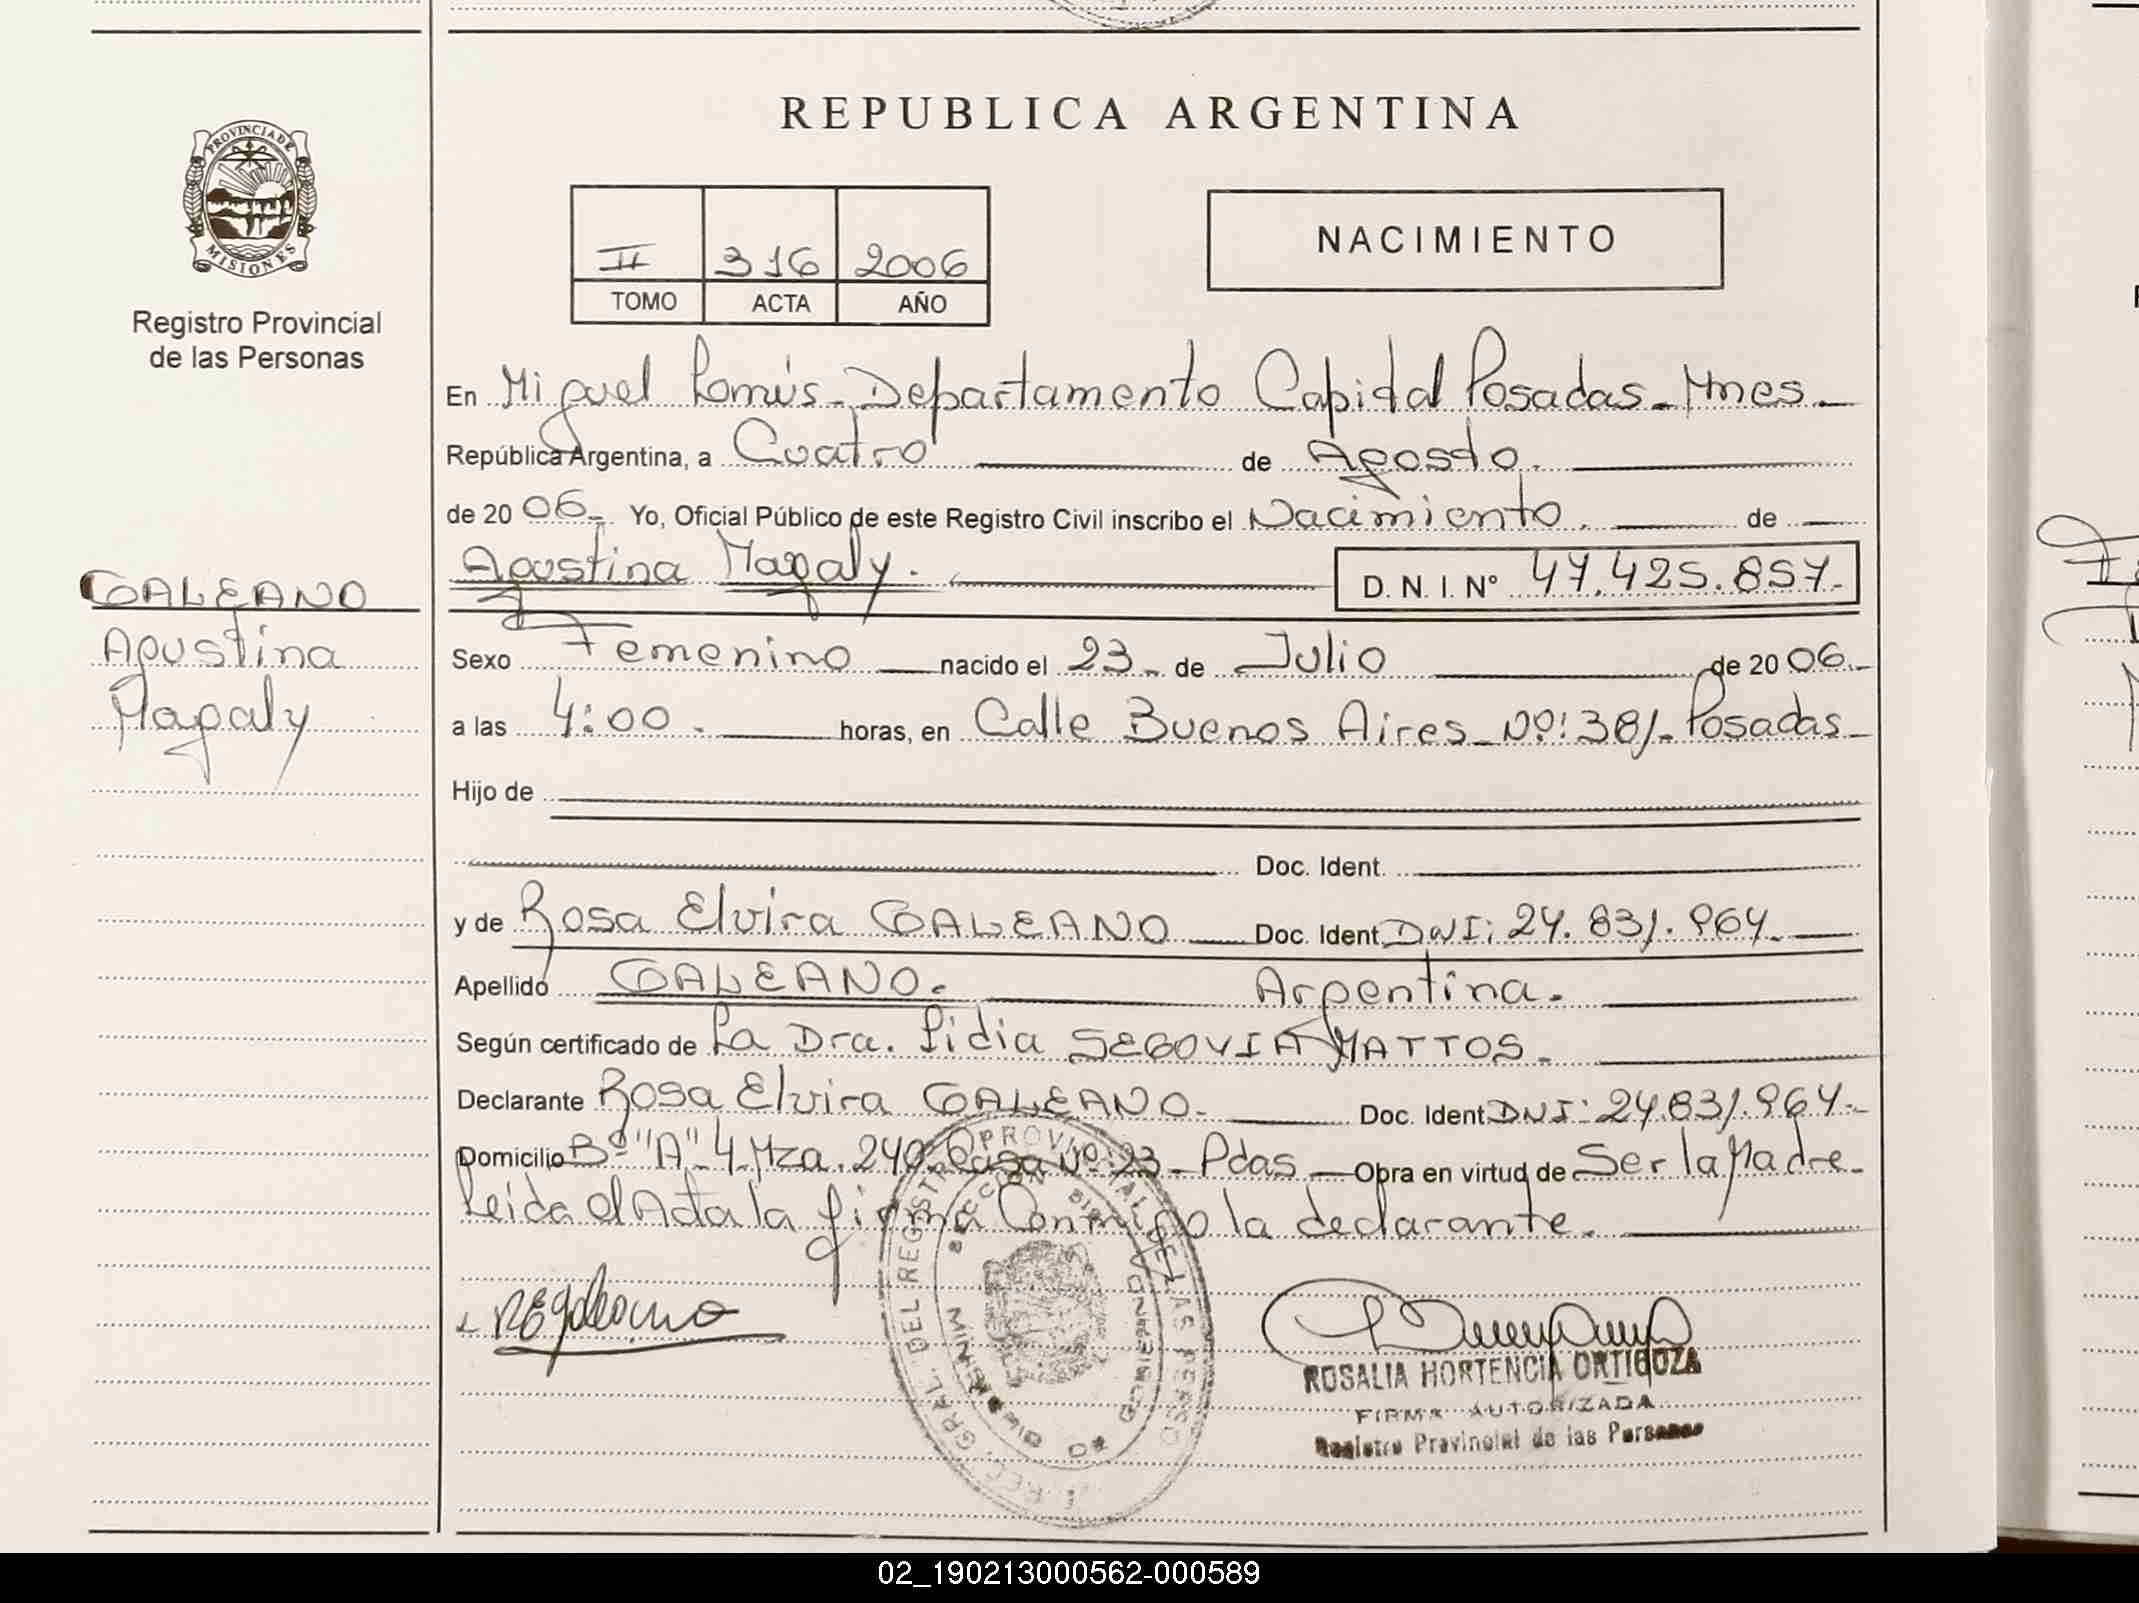 REPUBLICA ARGENTINA
PROVINCIA DE
MISIONES
Registro Provincial
de las Personas
II 316 2006
TOMO ACTA AÑO
NACIMIENTO
En Miguel Lanús - Departamento Capital Posadas - Mnes.
República Argentina, a Cuatro de Agosto.
de 20 06 - Yo, Oficial Público de este Registro Civil inscribo el Nacimiento. de
Agustina Magaly. D. N. I. Nº 47.425.857.-
GALEANO
Agustina
Magaly
Sexo Femenino nacido el 23 - de Julio de 20 06.-
a las 4:00 . horas, en Calle Buenos Aires - Nº: 381 - Posadas -
Hijo de
Doc. Ident.
y de Rosa Elvira GALEANO Doc. Ident. DNI: 24.831.964.
Apellido GALEANO. Argentina.
Según certificado de La Dra. Lidia SEGOVIA MATTOS.
Declarante Rosa Elvira GALEANO. Doc. Ident. DNI: 24.831.964.-
Domicilio Bº "A" 4 Mza. 240 Casa Nº: 23 - Pdas - Obra en virtud de Ser la Madre -
Leida el Acta la firma Conmigo la declarante.
ROSALIA HORTENCIA ORTIGOZA
FIRMA AUTORIZADA
Registro Provincial de las Personas
02_190213000562-000589